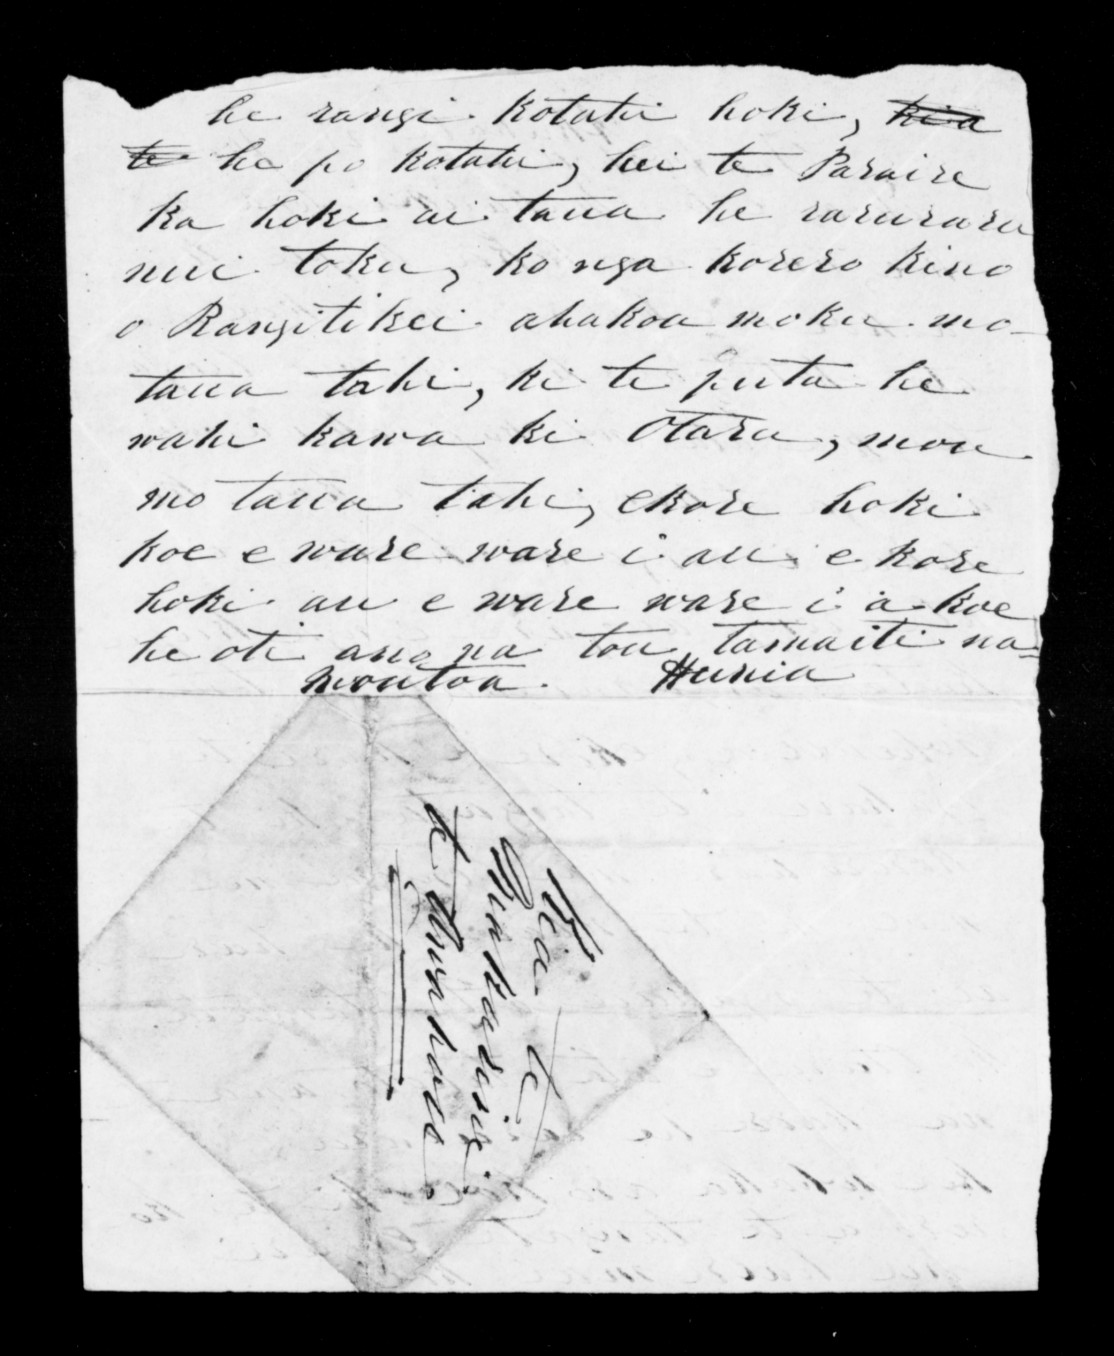 he rangi kotahi hoki, kia
te he po kotahi, hei te Paraire
ka hoki ai taua he raruraru
nui toku, ko nga korero kino
o Rangitikei ahakoa moku mo
taua tahi, ki te puta he
wahi kawa ki Otara, mou
mo taua tahi, ekore hoki
koe e ware ware i au e kore
hoki au e ware ware i a koe
he oti ano na tou tamaiti na
Moutoa. Hunia
Kia te
te Awahou